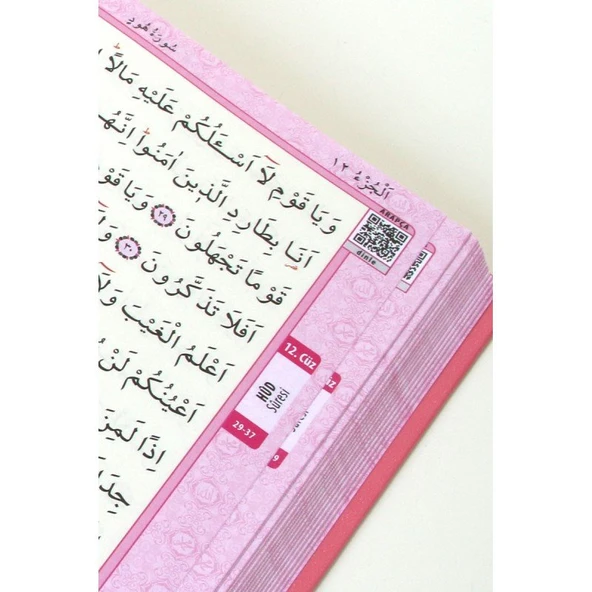 سُورَةُ هُودٍ
اَلْجُزْءُ ١٢
وَيَا قَوْمِ لَٓا اَسْـَٔلُكُمْ عَلَيْهِ مَالًا
اَنَا۬ بِطَارِدِ الَّذ۪ينَ اٰمَنُوا اِنَّهُمْ
قَوْمًا تَجْهَلُونَ ٢٩ وَيَا قَوْمِ
اَفَلَا تَذَكَّرُونَ ٣٠
اَعْلَمُ الْغَيْبَ وَلَٓا
اَعْيُنُكُمْ لَنْ
اِذًا لَمِنَ
ARAPÇA
dinle
12. Cüz
HÛD
Sûresi
29-37